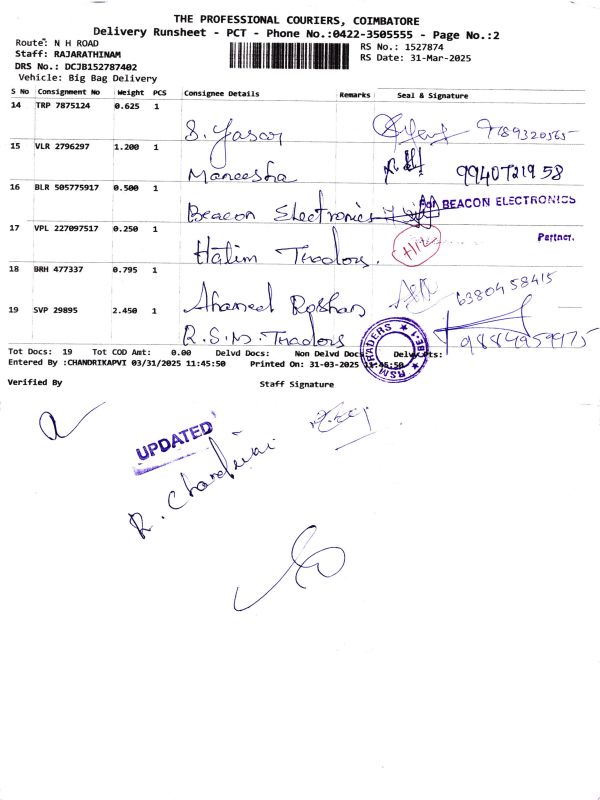 THE PROFESSIONAL COURIERS, COIMBATORE
Delivery Runsheet - PCT - Phone No.:0422-3505555 - Page No.:2
Route: N H ROAD
RS No.: 1527874
Staff: RAJARATHINAM
RS Date: 31-Mar-2025
DRS No.: DCJB152787402
Vehicle: Big Bag Delivery
S No Consignment No Weight PCS Consignee Details Remarks Seal & Signature
14 TRP 7875124 0.625 1
S. Yasar 9789320565
15 VLR 2796297 1.200 1
Maneesha 9940721958
16 BLR 505775917 0.500 1
Beacon Electronics For BEACON ELECTRONICS
17 VPL 227097517 0.250 1
Partner.
Hatim Tradors.
18 BRH 477337 0.795 1
Ahamed Roshan 6380458415
19 SVP 29895 2.450 1
R.S.M. Tradors RSM TRADERS 9884959975
Tot Docs: 19 Tot COD Amt: 0.00 Delvd Docs: Non Delvd Docs: Delvy Pts:
Entered By :CHANDRIKAPVI 03/31/2025 11:45:50 Printed On: 31-03-2025 11:45:50
Verified By Staff Signature
UPDATED